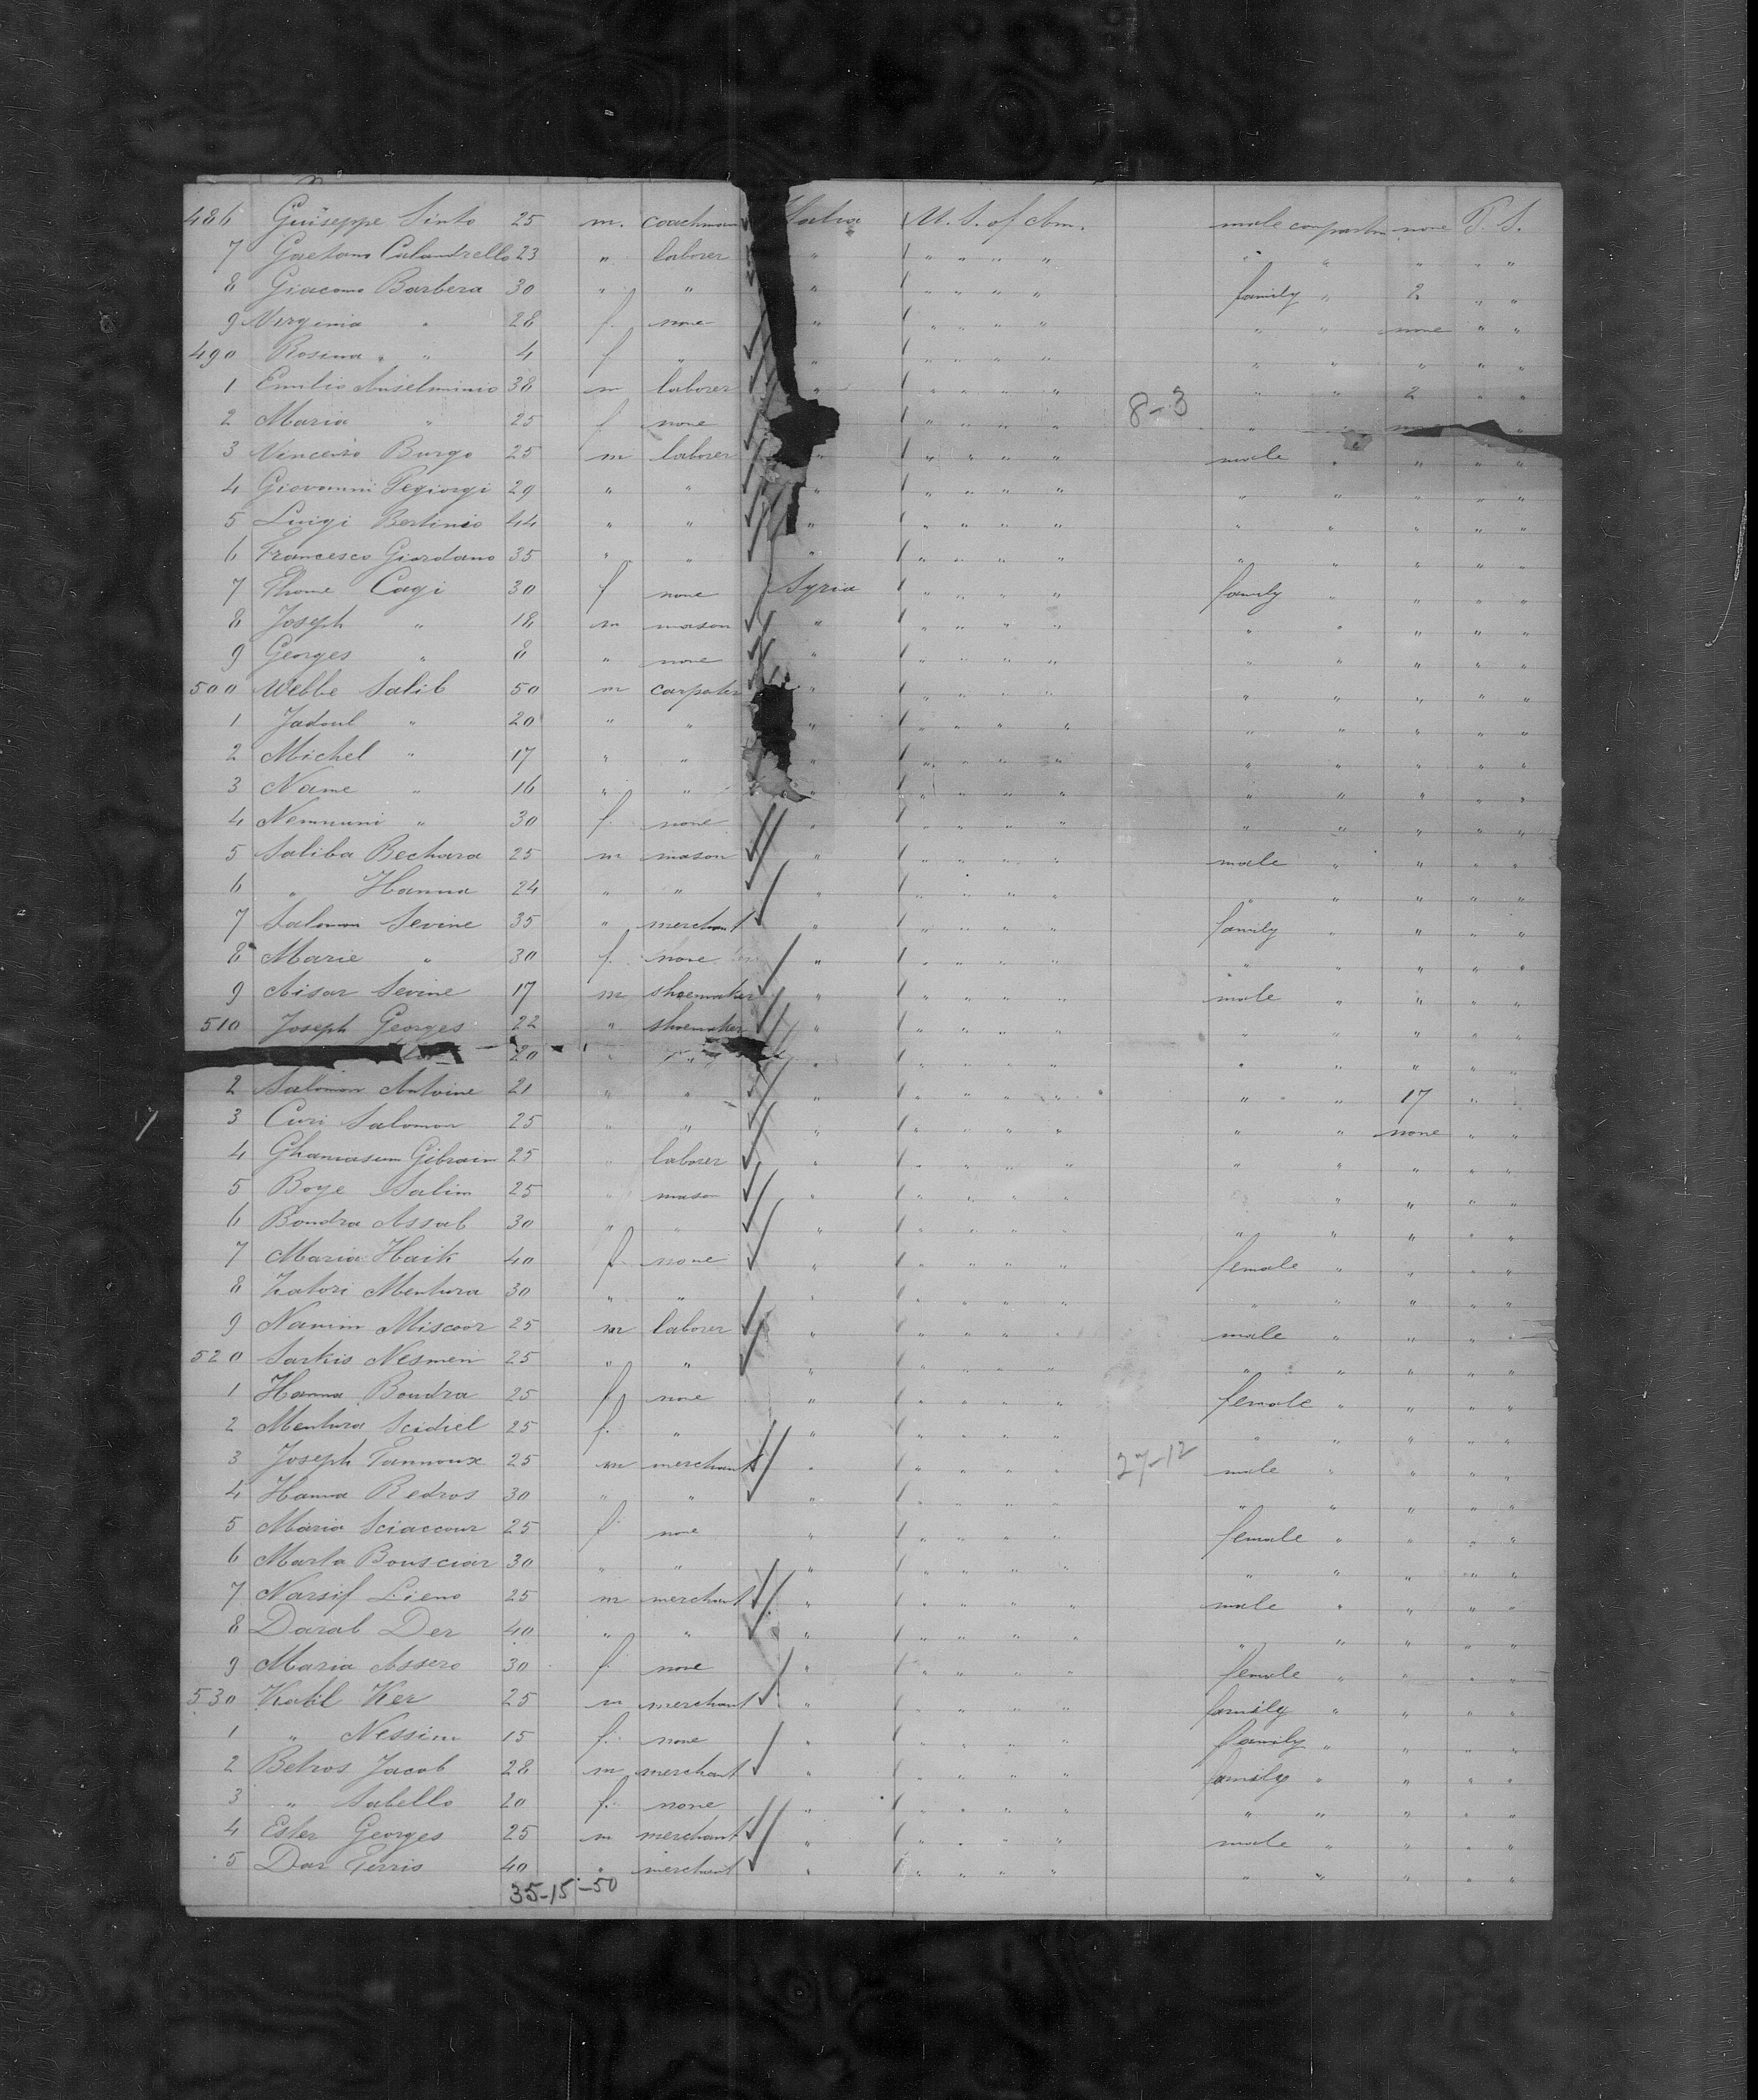 486 Guiseppe Sinto 25 m. coachman Italia U. S. of Am. male compartm none T. S.
7 Gaetano Calandrello 23 " laborer " " " " " " " " " "
8 Giacomo Barbera 30 " " " " " " " family " 2 " "
9 Virginia " 28 f. none " " " " " " " none " "
490 Rosina " 4 f " " " " " " " " " " "
1 Emilio Anselminio 38 m laborer " " " " " " " 2 " "
2 Maria " 25 f none " " " " " "
8-3
3 Vincenso Burgo 25 m laborer " " " " " male " " " "
4 Giovanni Pegiorgi 29 " " " " " " " " " " " "
5 Luigi Bertinio 44 " " " " " " " " " " " "
6 Francesco Giordano 35 " " " " " " " " " " " "
7 Thome Cagi 30 f none Syria " " " " family " " " "
8 Joseph " 18 m mason " " " " " " " " " "
9 Georges " 8 " none " " " " " " " " " "
500 Webbe Salib 50 m carpater " " " " " " " " " "
1 Jadoul " 20 " " " " " " " " " " " "
2 Michel " 17 " " " " " " " " " " " "
3 Name " 16 " " " " " " " " " " " "
4 Nemnuni " 30 f. none " " " " " " " " " "
5 Saliba Bechara 25 m mason " " " " " male " " " "
6 " Hanna 24 " " " " " " " " " " " "
7 Salomon Sevine 35 " merchant " " " " " family " " " "
8 Marie " 30 f. none " " " " " " " " " "
9 Aisar Sevine 17 m shoemaker " " " " " male " " " "
510 Joseph Georges 22 " shoemaker " " " " " " " " " "
20 " " " " " " " " " " "
2 Salomon Antoine 21 " " " " " " " " " 17 " "
3 Curi Salomon 25 " " " " " " " " " none " "
4 Ghanasum Gibrain 25 " laborer " " " " " " " " " "
5 Boye Salim 25 " mason " " " " " " " " "
6 Boudra Assab 30 " " " " " " " " " " " "
7 Maria Haik 40 f none " " " " " female " " " "
8 Katori Mentura 30 " " " " " " " " " " " "
9 Namm Miscoor 25 m laborer " " " " " male " " " "
520 Sarkis Nesmen 25 " " " " " " " " " " " "
1 Hanna Boudra 25 f. none " " " " " female " " " "
2 Mentura Scidiel 25 f. " " " " " " " " " " "
3 Joseph Tannoux 25 m merchant " " " " " 27-12 male " " " "
4 Hanna Redros 30 " " " " " " " " " " " "
5 Maria Sciaccour 25 f. none " " " " " female " " " "
6 Marta Bousciar 30 " " " " " " " " " " " "
7 Narsif Lieno 25 m merchant " " " " " male " " " "
8 Darab Der 40 " " " " " " " " " " " "
9 Maria Assero 30 f. none " " " " " female " " " "
530 Kalil Ker 25 m merchant " " " " " family " " " "
1 " Nessim 15 f. none " " " " " family " " " "
2 Betros Jacob 28 m merchant " " " " " family " " " "
3 " Sabello 20 f. none " " " " " " " " " "
4 Ester Georges 25 m merchant " " " " " male " " " "
5 Dar Ferris 40 " merchant " " " " " " " " " "
35-15-50